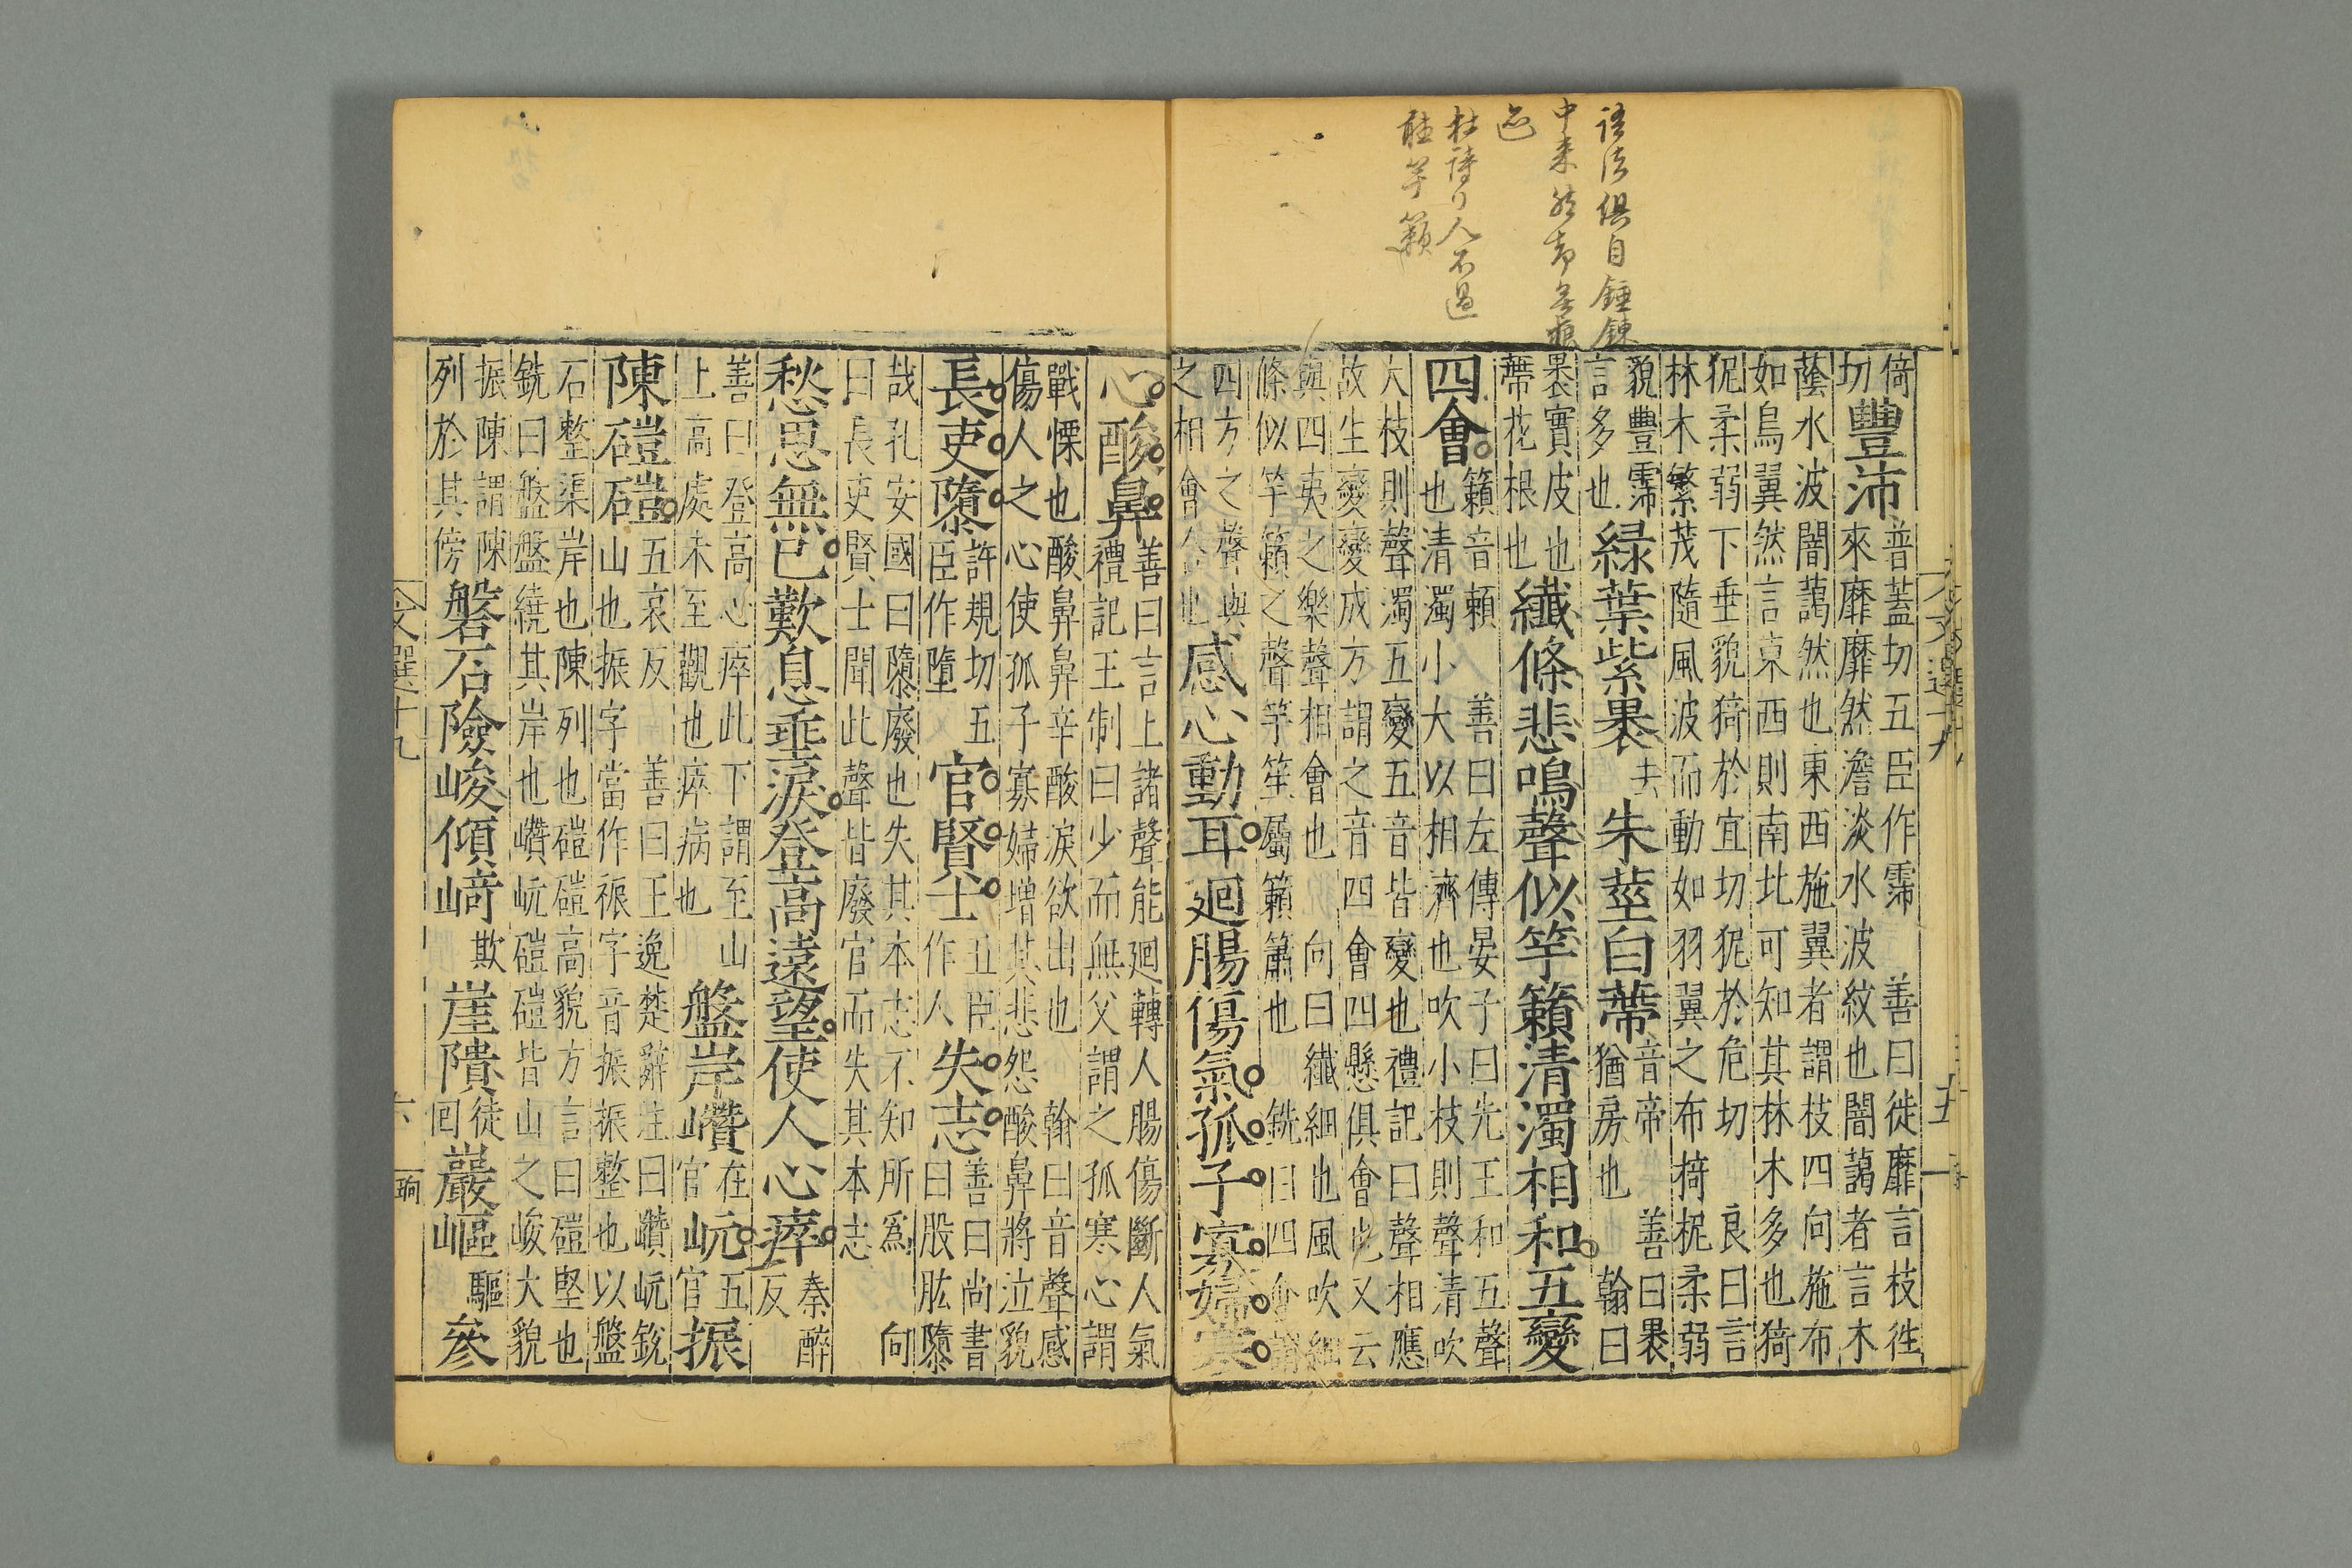 語法俱自錘鍊
中來然却無痕
迹
杜詩了人不過
聽竿籟
文選十九
五
倚蓋切五臣作霈善曰徙靡言枝往
切豐沛普來靡靡然澹淡水波紋也闇藹者言木
蔭水波闇藹然也東西施翼者謂枝四向施布
如鳥翼然言東西則南北可知其林木多也猗
狔柔弱下垂貌猗於宜切狔於危切良曰言
林木繁茂隨風波而動如羽翼之布猗狔柔弱
貌豐霈言多也綠葉紫裹朱莖白蔕音帝猶房也善曰裹
翰曰
裹實皮也
蔕花根也纖條悲鳴聲似竽籟清濁相和五變
四會籟音頼善曰左傳晏子曰先王和五聲
也清濁小大以相濟也吹小枝則聲清吹
大枝則聲濁五變五音皆變也禮記曰聲相應
故生變變成方謂之音四會四懸俱會也又云
與四夷之樂聲相會也向曰纖細也風吹細
條似竽籟之聲竽笙屬籟簫也銑曰四會謂
四方之聲與
之相會合也感心動耳廻腸傷氣孤子寡婦寒
心酸鼻善曰言上諸聲能廻轉人腸傷斷人氣
禮記王制曰少而無父謂之孤寒心謂
戰慄也酸鼻鼻辛酸淚欲出也翰曰音聲感
傷人之心使孤子寡婦增其悲怨酸鼻將泣貌
長吏隳許規切五臣作墮官賢士五臣作人失志善曰尚書
曰股肱隳
哉孔安國曰隳廢也失其本志不知所爲向
曰長吏賢士聞此聲皆廢官而失其本志
愁思無已歎息垂淚登高遠望使人心瘁秦醉反
善曰登高心瘁此下謂至山
上高處未至觀也瘁病也盤岸巑在官岏五官振
陳磑磑五哀反善曰王逸楚辭注曰巑岏銳
山也振字當作裖字音振振整也以盤
石整渠岸也陳列也磑磑高貌方言曰磑堅也
銑曰盤盤繞其岸也巑岏磑磑皆山之峻大貌
振陳謂陳
列於其傍磐石險峻傾崎欺崖隤徒回巖嶇驅參
文選十九
六